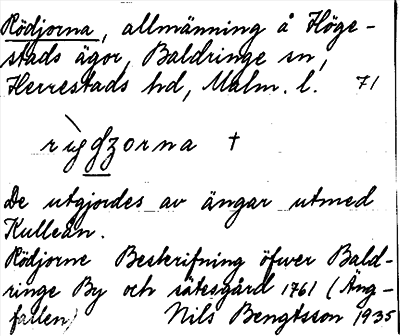 Rödjorna, allmänning å Höge-
stads ägor, Baldringe sn,
Herrestads hd, Malm. l. 71
rùgzorna +
De utgjordes av ängar utmed
Kulleån.
Rödjorne Beskrifning öfwer Bald-
ringe By och sätesgård 1761 (Äng-
fallen) Nils Bengtsson 1935